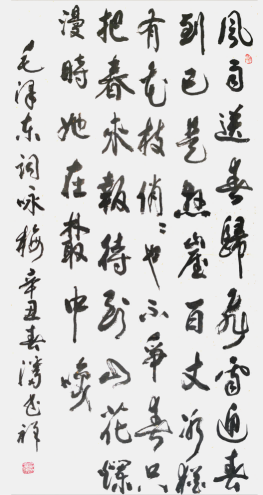 風雨送春歸飛雪迎春
到已是懸崖百丈冰猶
有花枝俏〻也不爭春只
把春來報待到山花爛
漫時她在叢中咲
毛澤东詞咏梅辛丑春潘祥